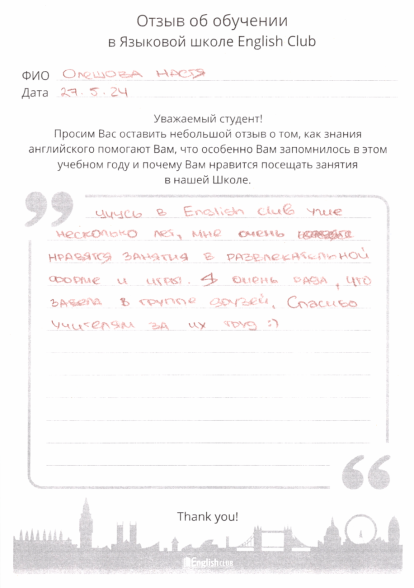 Отзыв об обучении
в Языковой школе English Club
ФИО Олешова Настя
Дата 27.5.24
Уважаемый студент!
Просим Вас оставить небольшой отзыв о том, как знания
английского помогают Вам, что особенно Вам запомнилось в этом
учебном году и почему Вам нравится посещать занятия
в нашей Школе.
учусь в English club уже
несколько лет, мне очень
нравятся занятия в развлекательной
форме и игры. Я очень рада, что
завела в группе друзей. Спасибо
учителям за их труд :)
Thank you!
English Club